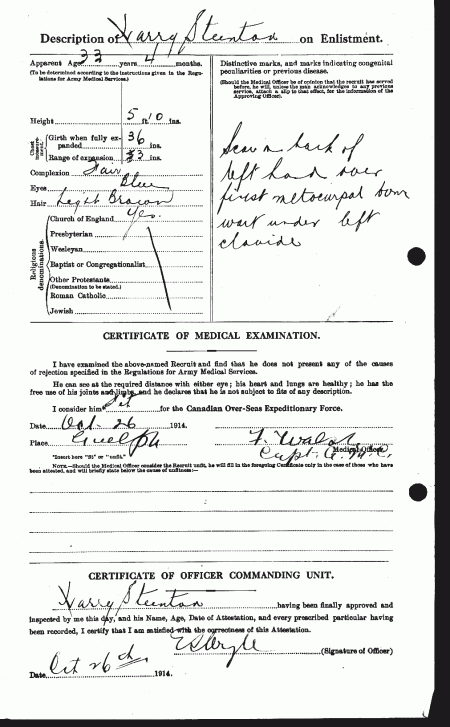 Description of Harry Steenton on Enlistment.
Apparent Age 33 years 4 months.
(To be determined according to the instructions given in the Regulations for Army Medical Services.)
Height 5 ft 10 ins.
Chest measurement
Girth when fully expanded 36 ins.
Range of expansion 33 ins.
Complexion Fair
Eyes Blue
Hair Light Brown
Religious denominations.
Church of England Yes.
Presbyterian
Wesleyan
Baptist or Congregationalist
Other Protestants
(Denomination to be stated.)
Roman Catholic
Jewish
Distinctive marks, and marks indicating congenital
peculiarities or previous disease.
(Should the Medical Officer be of opinion that the recruit has served
before, he will, unless the man acknowledges to any previous
service, attach a slip to that effect, for the information of the
Approving Officer).
Scar on back of
left hand over
first metacarpal bone
wart under left
clavicle
CERTIFICATE OF MEDICAL EXAMINATION.
I have examined the above-named Recruit and find that he does not present any of the causes
of rejection specified in the Regulations for Army Medical Services.
He can see at the required distance with either eye; his heart and lungs are healthy; he has the
free use of his joints and limbs, and he declares that he is not subject to fits of any description.
I consider him Fit for the Canadian Over-Seas Expeditionary Force.
Date Oct. 26 1914.
Place Guelph
F. Capt. A.M.C.
Medical Officer.
*Insert here "fit" or "unfit."
NOTE.—Should the Medical Officer consider the Recruit unfit, he will fill in the foregoing Certificate only in the case of those who have
been attested, and will briefly state below the cause of unfitness:—
CERTIFICATE OF OFFICER COMMANDING UNIT.
Harry Steenton having been finally approved and
inspected by me this day, and his Name, Age, Date of Attestation, and every prescribed particular having
been recorded, I certify that I am satisfied with the correctness of this Attestation.
(Signature of Officer)
Date Oct 26th 1914.